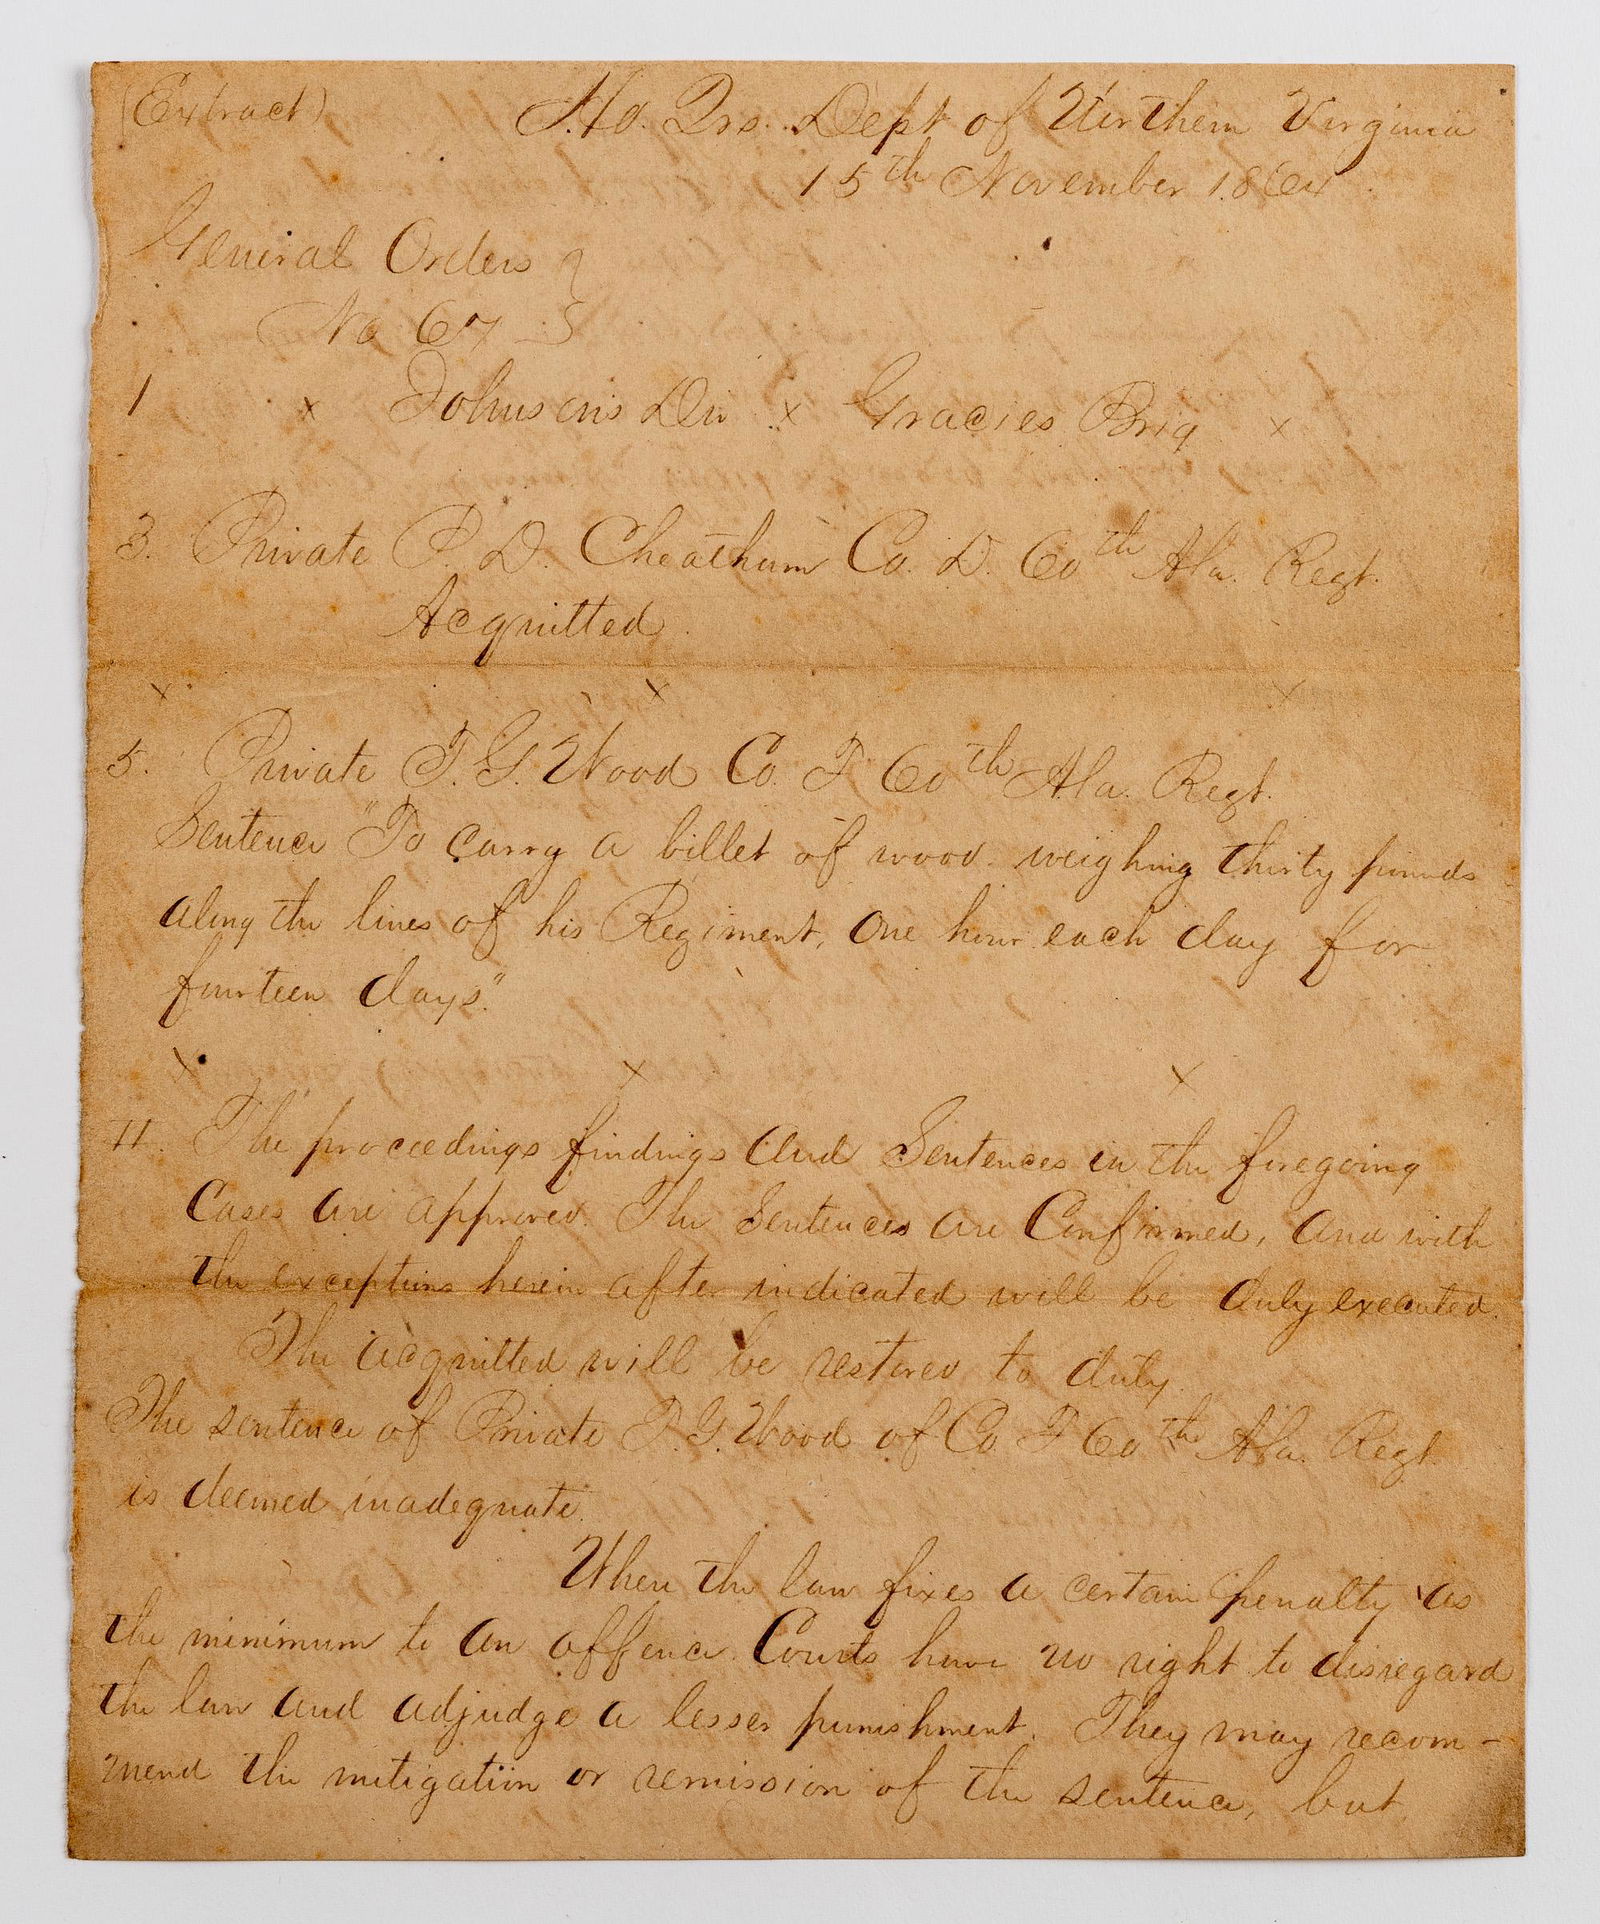 (Extract)
Hd. Qrs. Dept of Northern Virginia
15th November 1864
General Orders }
No 67 }
1 x Johnsons Div x Gracies Brig x
3. Private P. D. Cheathum Co. D. 60th Ala. Regt.
Acquitted.
x x x
5. Private T. G. Wood Co. F 60th Ala. Regt.
Sentence "To carry a billet of wood weighing thirty pounds
along the lines of his Regiment, One hour each day for
fourteen days".
x x x
II. The proceedings findings and Sentences in the foregoing
Cases are approved. The Sentences are Confirmed, and with
the exceptions herein after indicated will be duly executed.
The acquitted will be restored to duty.
The sentence of Private T. G. Wood of Co F 60th Ala. Regt.
is deemed inadequate.
When the law fixes a certain penalty as
the minimum to an offence Courts have no right to disregard
the law and adjudge a lesser punishment. They may recom-
mend the mitigation or remission of the sentence, but